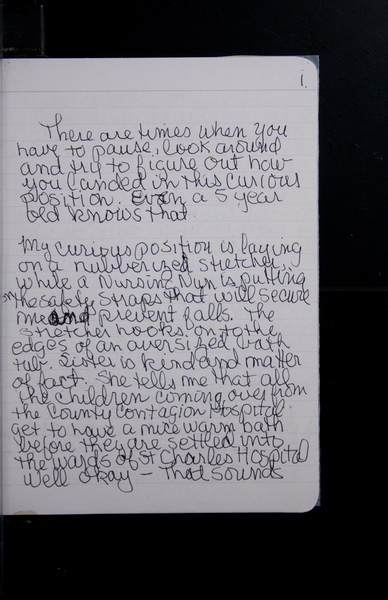 1.
There are times when you
have to pause, look around
and try to figure out how
you landed in this curious
position. Even a 5 year
old knows that.
My curious position is laying
on a rubberized stretcher,
while a Nursing Nun is putting
on the safety straps that will secure
me and prevent falls. The
stretcher hooks on to the
edges of an oversized bath
tub. Sister is kind and matter
of fact. She tells me that all
the children coming over from
the County Contagion Hospital
get to have a nice warm bath
before they are settled into
the wards of St Charles Hospital
Well okay — That sounds